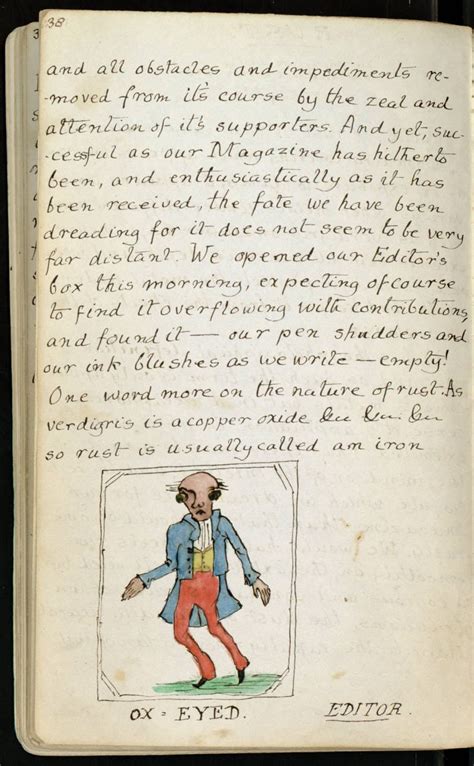 38
and all obstacles and impediments re-
-moved from it's course by the zeal and
attention of it's supporters. And yet, suc-
-cessful as our Magazine has hitherto
been, and enthusiastically as it has
been received, the fate we have been
dreading for it does not seem to be very
far distant. We opened our Editor's
box this morning, expecting of course
to find it overflowing with contributions,
and found it — our pen shudders and
our ink blushes as we write — empty!
One word more on the nature of rust. As
verdigris is a copper oxide &c &c. &c
so rust is usually called am iron
OX = EYED. EDITOR.